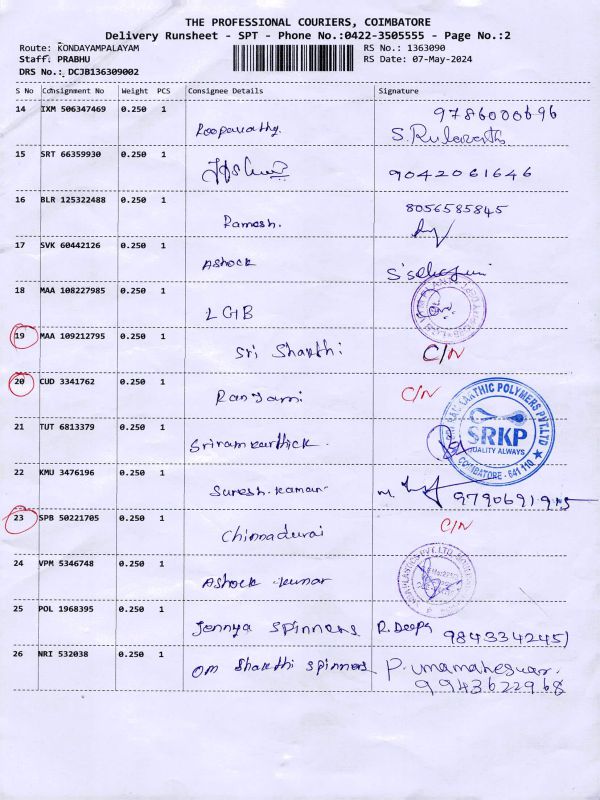 THE PROFESSIONAL COURIERS, COIMBATORE
Delivery Runsheet - SPT - Phone No.:0422-3505555 - Page No.:2
Route: KONDAYAMPALAYAM RS No.: 1363090
Staff. PRABHU RS Date: 07-May-2024
DRS No.: DCJB136309002
S No Consignment No Weight PCS Consignee Details Signature
14 IXM 506347469 0.250 1
9786000696
Roopavathy.
15 SRT 66359930 0.250 1
9042061646
16 BLR 125322488 0.250 1
8056585845
Ramesh.
17 SVK 60442126 0.250 1
Ashock
18 MAA 108227985 0.250 1
LGB
19 MAA 109212795 0.250 1
Sri Shakthi C/N
20 CUD 3341762 0.250 1
Rangasami C/N
POLYMERS PVT.LTD
SRKP
QUALITY ALWAYS
COIMBATORE - 641 110
21 TUT 6813379 0.250 1
Sriramkarthick.
22 KMU 3476196 0.250 1
Suresh.kamar
23 SPB 50221705 0.250 1
Chinnadurai C/N
24 VPM 5346748 0.250 1
Ashock .kumar
25 POL 1968395 0.250 1
Jennya Spinners R.Deepa
9843342451
26 NRI 532038 0.250 1
Om Shakthi Spinners P.umamaheswari.
9943622968